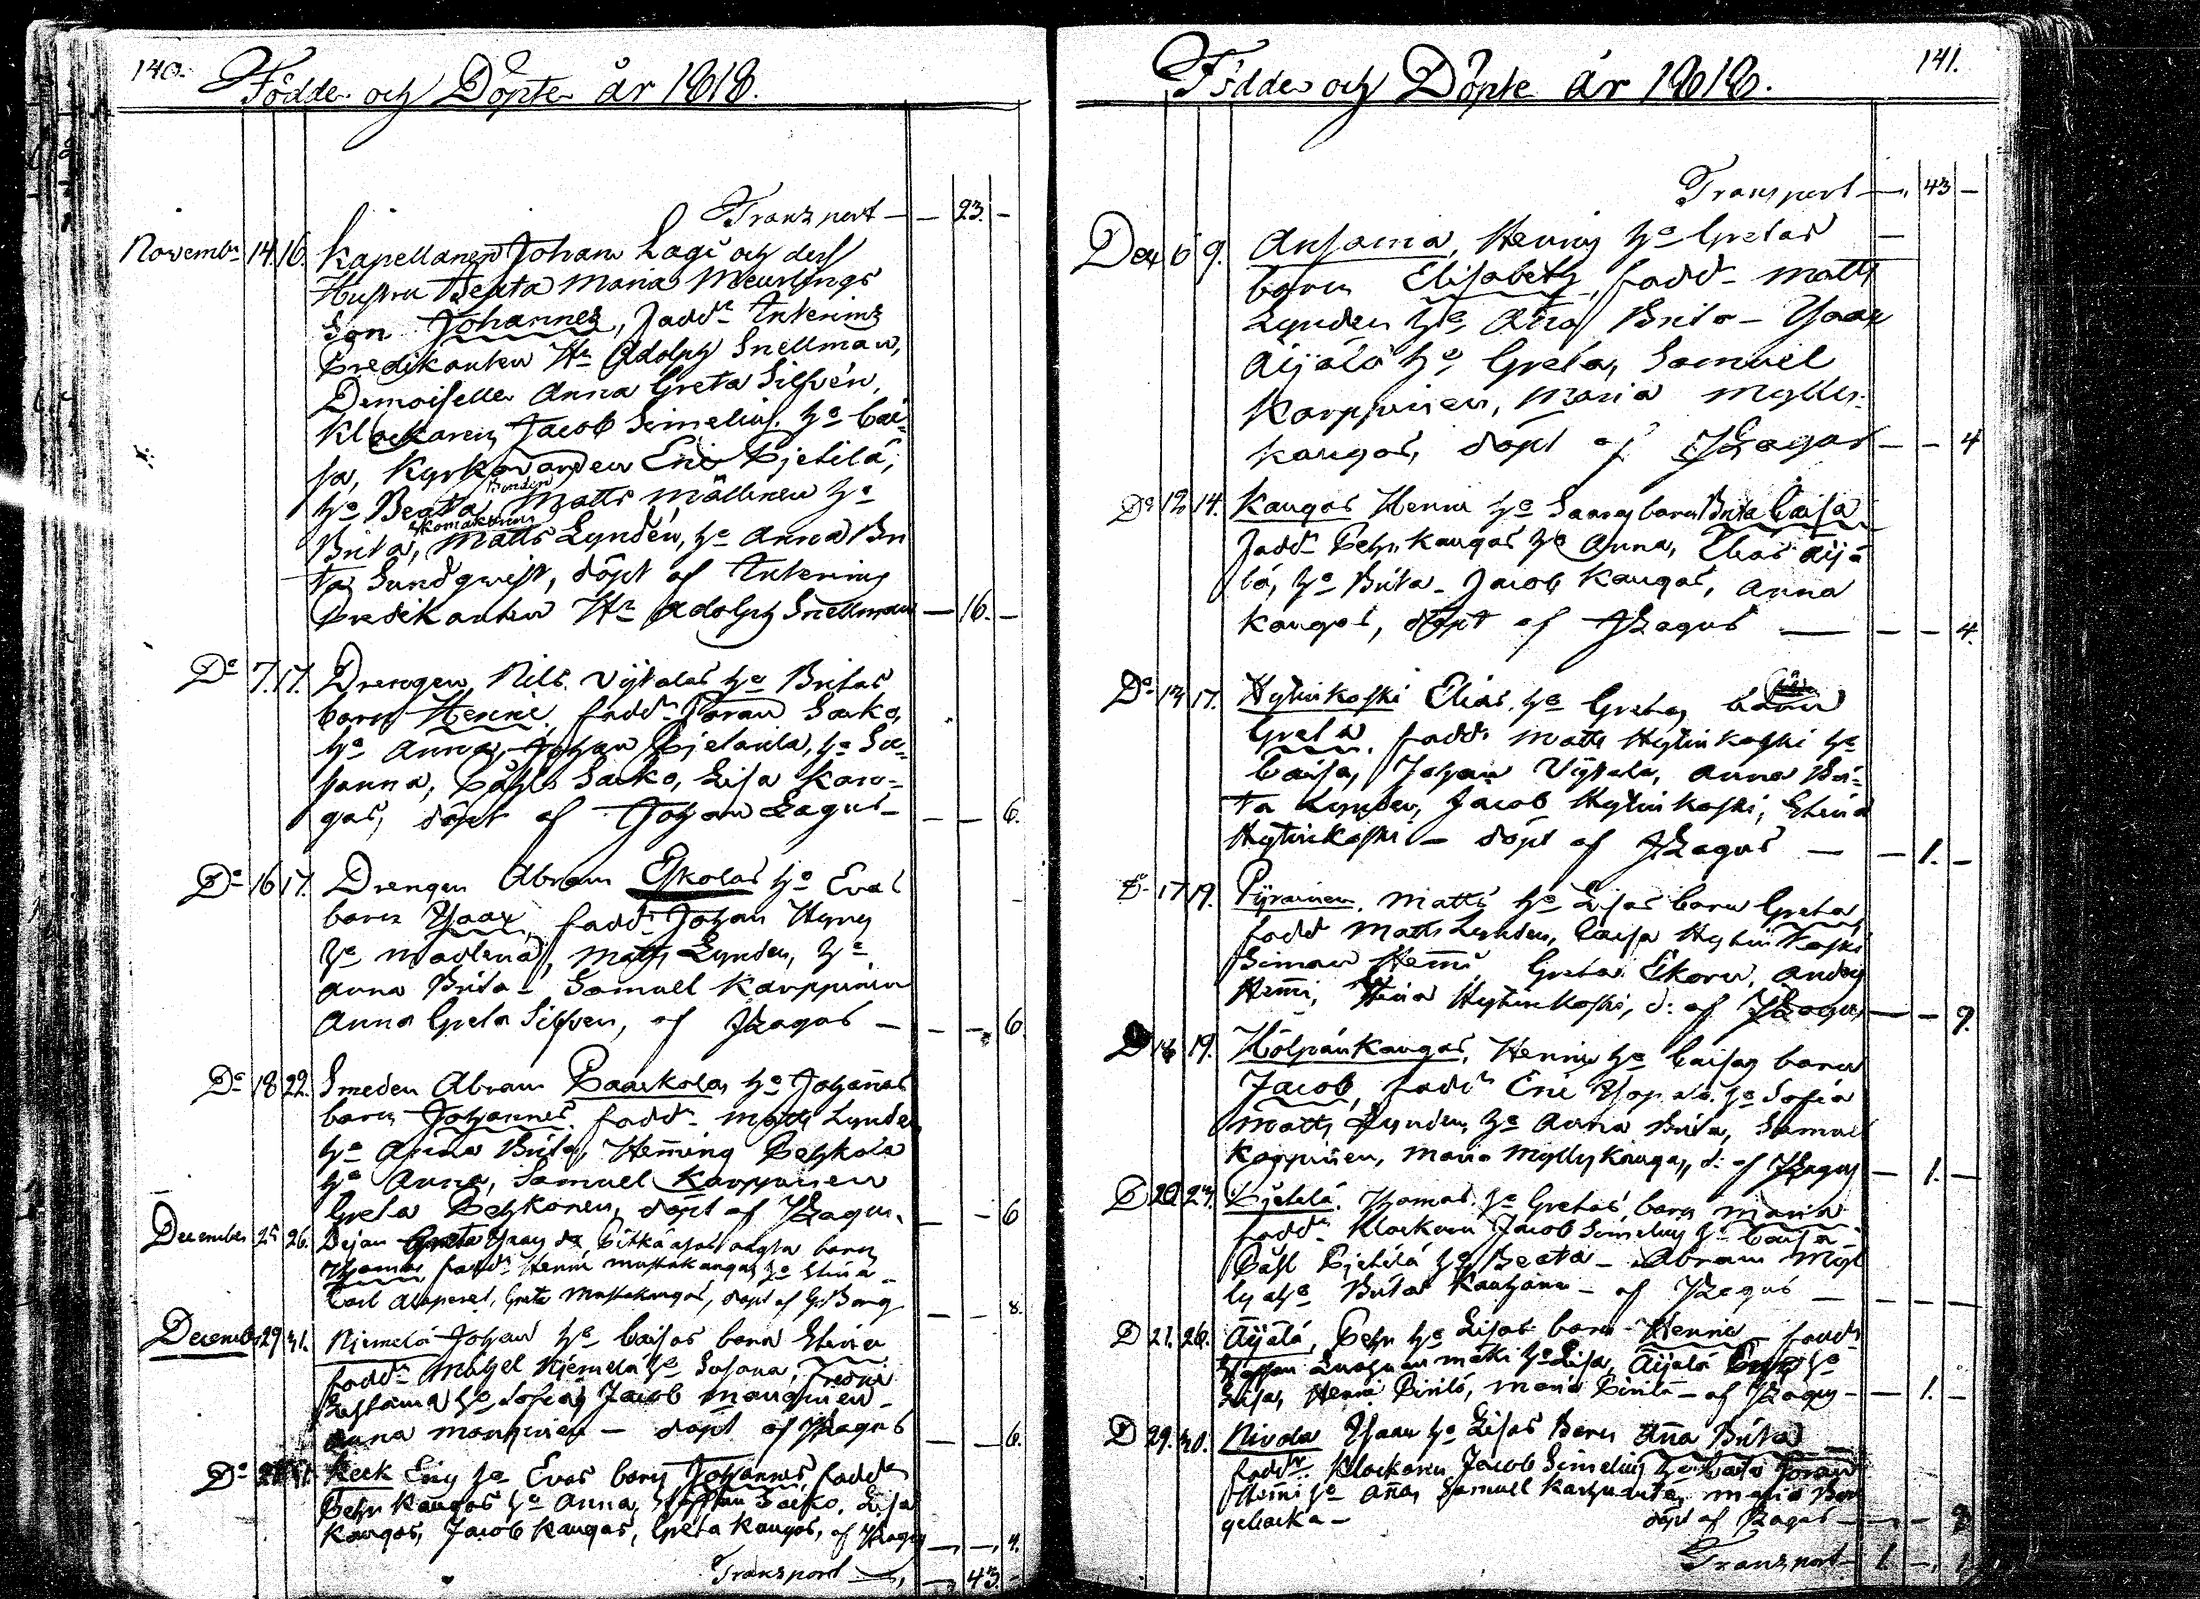 140.
Födde och Döpte år 1818.
Transport — — 23. —
Novembr 14. 16. Kapellanen Johan Lagi och dess
Hustru Beata Maria Meurlings
Son Johannes, fadd:r Interims
Predikanten Hr Adolph Snellman,
Demoiselle Anna Greta Silfvén,
Klockaren Jacob Simelius, ho Cai-
sa, Kyrkovärden Eric Pjetilä,
ho Beata, Bonden Matts Mällinen ho
Brita, Skomakaren Matts Lyndén, ho Anna Bri
ta Sundqwist, döpt af Interims
predikanten Hr Adolph Snellman — 16. —
Do 7. 17. Drengen Nils Vijtalas ho Britas
barn Henric, fadd:r Göran Sarko,
ho Anna, Johan Pjetarila, ho Su-
sanna, Påhl Sarko, Lisa Kan-
gas, döpt af Johan Lagus — — — 6.
Do 16 17. Drengen Abram Eskolas ho Evas
barn Isaac, fadd:r Johan Hyny
ho Madlena, Matts Lynden, ho
Anna Brita — Samuel Karppinen
Anna Greta Silfven, af JLagus — — — 6
Do 18 22. Smeden Abram Paaskolas ho Johañas
barn Johannes, fadd:r Matts Lynden
ho Anna Brita, Hem̄ing Pehkola
ho Anna, Samuel Karppinen
Greta Pehkonen, döpt af JLagus. — — 6
December 25 26. barn
Thomas, fadd:r Henric Mustakangas ho Stina —
Carl Greta Mustakangas, döpt af — — 8.
December 29 31. Niemelä Johan ho Caisas barn Stina
fadd:r Michel Niemelä ho Susana,
ho Sofia, Jacob Manninen —
Anna Manninen — döpt af JLagus — — 6.
Do Keck Eric ho Evas barn Johannes, fadd:r
Pehr Kangas ho Anna, Staffan Sarko, Lisa
Kangas, Jacob Kangas, Greta Kangas, af JLagus —, —, 4.
Transport —, —, 43. —
141.
Födde och Döpte år 1818.
Transport —, 43 —
Dec 6 9. Ansama, Henric ho Gretas
barn Elisabeth, fadd:r Matts
Lynden ho Aña Brita — Isaac
Äijälä ho Greta, Samuel
Karppinen, Maria Mylly-
kangas, döpt af JLagus — — 4
Do 12 14. Kangas Henric ho Saras barn Brita Caisa
fadd:r Pehr Kangas ho Anna, Elias Äijä
lä, ho Brita — Jacob Kangas, Anna
Kangas, döpt af JLagus — — — 4.
Do 13 17. Hytinkoski Elias ho Gretas barn
Greta, fadd:r Matts Hytinkoski ho
Caisa, Johan Vijtala, Anna Bri-
ta Lynden, Jacob Hytinkoski, Stina
Hytinkoski — döpt af JLagus — — 1. —
Do 17 19. Pyrainen Matts ho Lisas barn Greta,
fadd Matts Lynden, Caisa Hytinkoski
Simon Hem̄i, Greta Ekorn, Anders
Hem̄i, Stina Hytinkoski, d: af JLagus — — 9.
D 16 19. Hölpänkangas, Henric ho Caisas barn
Jacob, fadd:r Eric ho Sofia
Matts Lynden ho Anna Brita, Samuel
Karppinen, Maria Myllykangas, d: af JLagus — 1. —
D 20 27. Pjetilä Thomas ho Gretas barn Maria
fadd:r Klockaren Jacob Simelius ho Caisa —
Påhl Pjetilä ho Beata — Abram Myl
lylä ho Brita — af JLagus — — — —
D 21. 26. Äijälä, Pehr ho Lisas barn Henric fadd:r
Staffan ho Lisa, Äijälä ho
Lisa, Henric Pirilä, Maria Pirilä — af JLagus — — 1. —
D 29. 30. Nivola Isaac ho Lisas Barn Aña Brita —
fadd:r Klockaren Jacob Simelius ho Caisa, Göran
Hem̄i ho Aña, Samuel Maria Ber
gebacka — döpt af JLagus —
Transport — 1 —